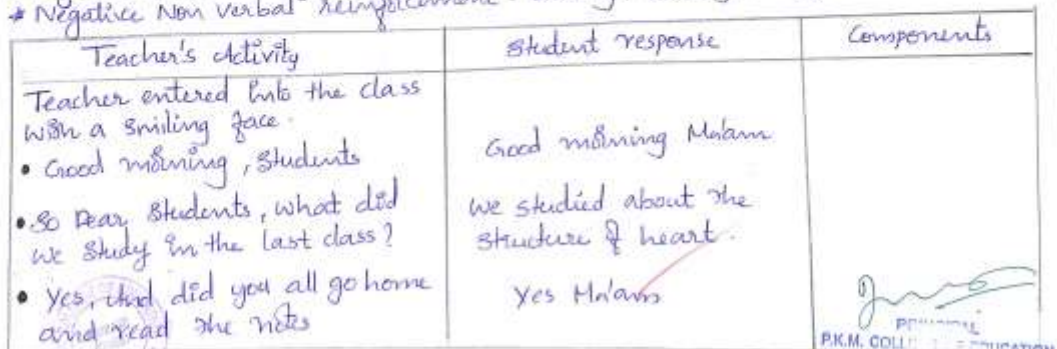 * Negative Non verbal reinforcement
Teacher's Activity
Student response
Components
Teacher entered into the class
with a smiling face.
• Good morning, Students
Good morning Ma'am
• So Dear Students, what did
we study in the last class?
we studied about the
structure of heart.
• Yes, And did you all go home
and read the notes
Yes Ma'am
PRINCIPAL
P.K.M. COLLEGE OF EDUCATION